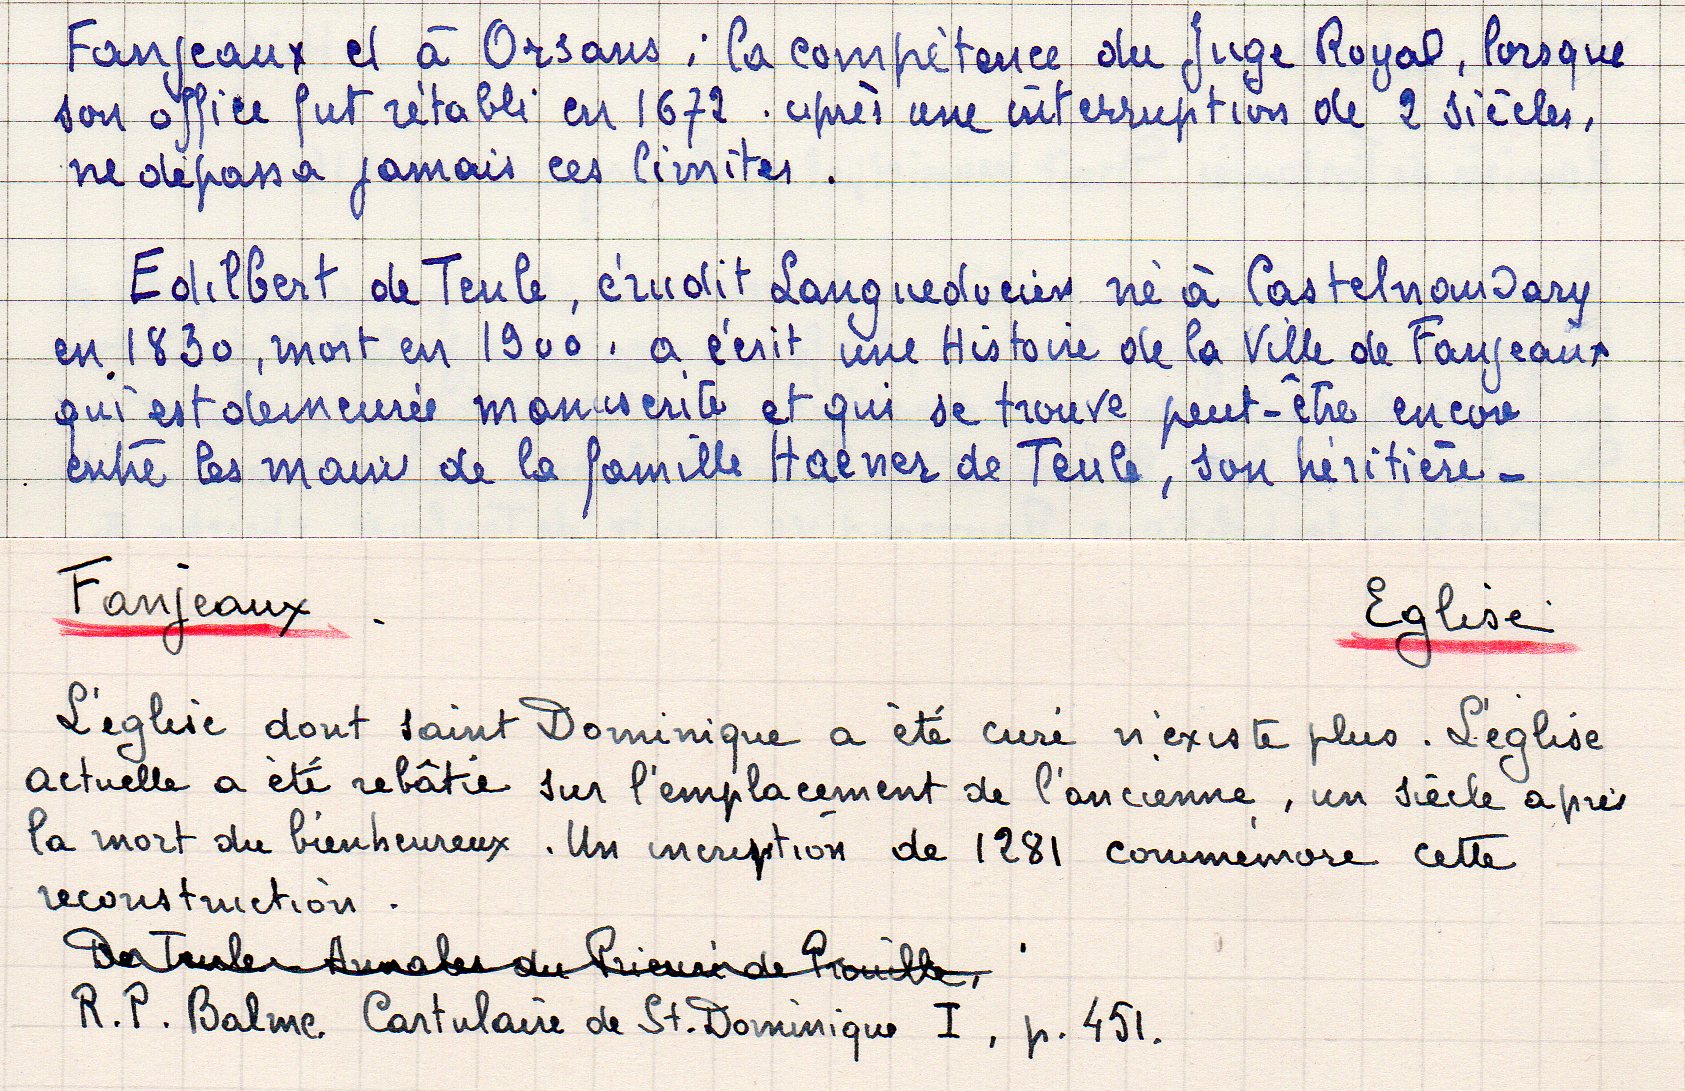 Fanjeaux et à Orsans ; la compétence du Juge Royal, lorsque
son office fut rétabli en 1672. après une interruption de 2 siècles,
ne dépassa jamais ces limites.
Edilbert de Teule, érudit Languedocien né à Castelnaudary
en 1830, mort en 1900. a écrit une Histoire de la Ville de Fanjeaux
qui est demeurée manuscrite et qui se trouve peut-être encore
entre les mains de la famille Hacner de Teule, son héritière -
Fanjeaux. Eglise
L'église dont saint Dominique a été curé n'existe plus. L'église
actuelle a été rebâtie sur l'emplacement de l'ancienne, un siècle après
la mort du bienheureux. Un incription de 1281 commémore cette
reconstruction.
De Teule Annales du Prieuré de Prouille,
R.P. Balme. Cartulaire de St. Dominique I, p. 451.